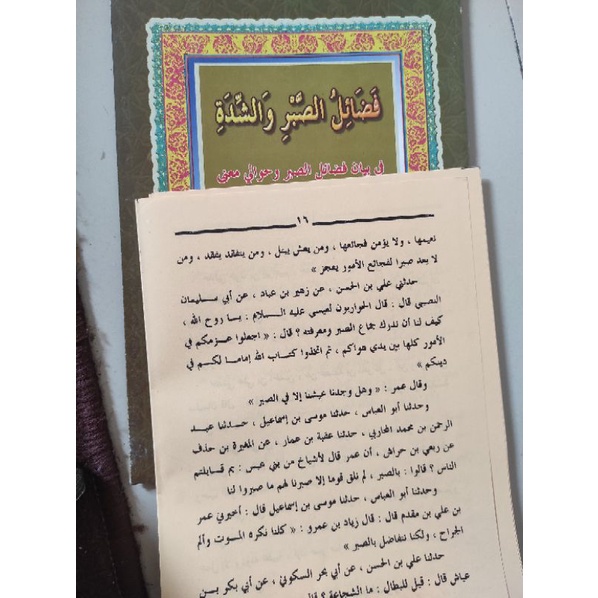 فَضَائِلُ الصَّبْرِ وَالشِّدَةِ
في بيان فضائل الصبر وحوالي معنى
١٦
نعيمها ، ولا يؤمن فجائعها ، ومن يعش يبتل ، ومن يتفقد يفقد ، ومن
لا يعد صبرا لفجائع الأمور يعجز »
حدثني علي بن الحسن ، عن زهير بن عباد ، عن أبي سليمان
النصيبي قال : قال الحواريون لعيسى عليه السلام : يا روح الله ،
كيف لنا أن ندرك جماع الصبر ومعرفته ؟ قال : « اجعلوا عزمكم في
الأمور كلها بين يدي هواكم ، ثم اتخذوا كتاب الله إماما لكم في
دينكم »
وقال عمر : « وهل وجدنا عيشنا إلا في الصبر »
وحدثنا أبو العباس ، حدثنا موسى بن إسماعيل ، حدثنا عبد
الرحمن بن محمد المحاربي ، حدثنا عقبة بن عمار ، عن المغيرة بن حذف
عن ربعي بن حراش ، أن عمر قال لأشياخ من بني عبس : بم قابلتم
الناس ؟ قالوا : بالصبر ، لم نلق قوما إلا صبرنا لهم ما صبروا لنا
وحدثنا أبو العباس ، حدثنا موسى بن إسماعيل قال : أخبرني عمر
بن علي بن مقدم قال : قال زياد بن عمرو : « كلنا نكره الموت وألم
الجراح ، ولكنا نتفاضل بالصبر »
حدثنا علي بن الحسن ، عن أبي بحر السكوني ، عن أبي بكر بن
عياش قال : قيل للبطال : ما الشجاعة ؟